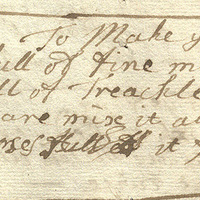 To Make y
full of fine m
ll of Treackle
are mix it a
it